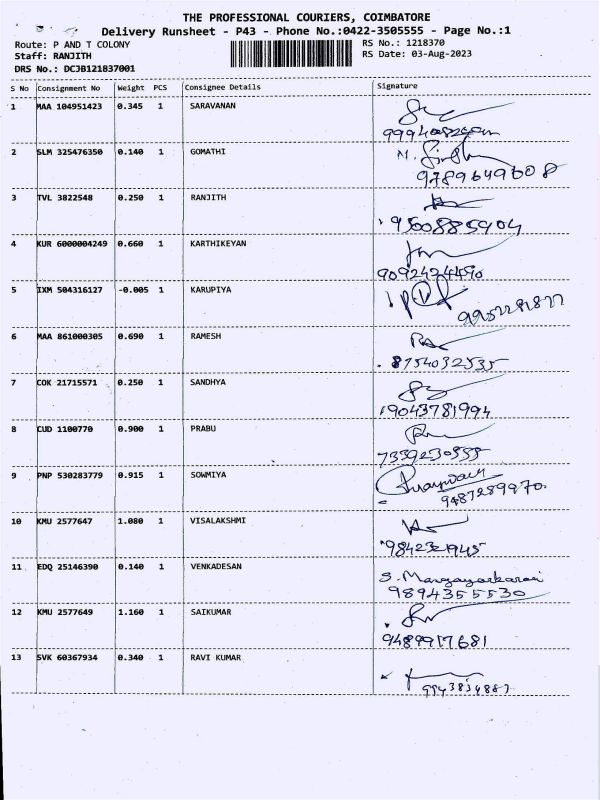 THE PROFESSIONAL COURIERS, COIMBATORE
Delivery Runsheet - P43 - Phone No.:0422-3505555 - Page No.:1
Route: P AND T COLONY
RS No.: 1218370
Staff: RANJITH
RS Date: 03-Aug-2023
DRS No.: DCJB121837001
S No Consignment No Weight PCS Consignee Details Signature
1 MAA 104951423 0.345 1 SARAVANAN
2 SLM 325476350 0.140 1 GOMATHI
9789649608
3 TVL 3822548 0.250 1 RANJITH
9500885904
4 KUR 6000004249 0.660 1 KARTHIKEYAN
9092424490
5 IXM 504316127 -0.005 1 KARUPIYA
6 MAA 861000305 0.690 1 RAMESH
8754032535
7 COK 21715571 0.250 1 SANDHYA
9043781994
8 CUD 1100770 0.900 1 PRABU
7339230555
9 PNP 530283779 0.915 1 SOWMIYA
9487289970
10 KMU 2577647 1.080 1 VISALAKSHMI
9842321945
11 EDQ 25146390 0.140 1 VENKADESAN
S. Mangayarkarasi
9894355530
12 KMU 2577649 1.160 1 SAIKUMAR
9489917681
13 SVK 60367934 0.340 1 RAVI KUMAR